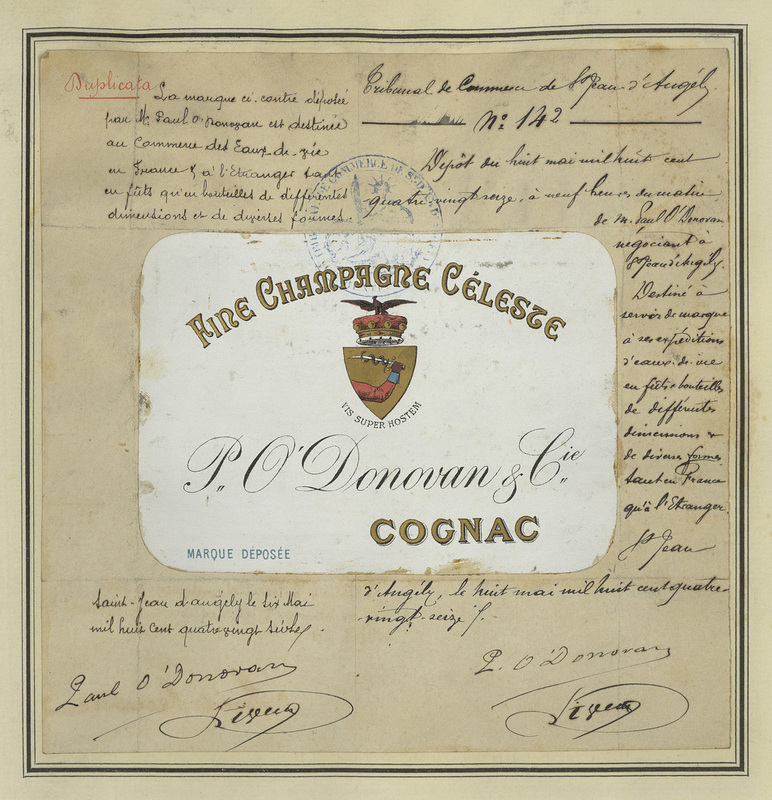 Duplicata
La marque ci. contre déposée
par Mr Paul O'Donovan est destinée
au Commerce des Eaux-de-vie
en France & à l'Etranger tant
en fûts qu'en bouteilles de différentes
dimensions et de diverses formes.
Tribunal de Commerce de St Jean d'Angély.
No 142
Dépôt du huit mai mil huit cent
quatre vingt seize, à neuf heures du matin
de M. Paul O'Donovan
négociant à
St Jean d'Angély.
Destiné à
servir de marque
à ses expéditions
d'eaux-de-vie
en fûts & bouteilles
de différentes
dimensions &
de diverses formes
tant en France
qu'à l'Etranger.
St Jean
d'Angély, le huit mai mil huit cent quatre-
vingt-seize
P. O'Donovan
TRIBUNAL DE COMMERCE DE ST JEAN
FINE CHAMPAGNE CÉLESTE
VIS SUPER HOSTEM
P. O'Donovan & Cie
COGNAC
MARQUE DÉPOSÉE
Saint-Jean d'angély le Six Mai
mil huit cent quatre vingt seize.
Paul O'Donovan